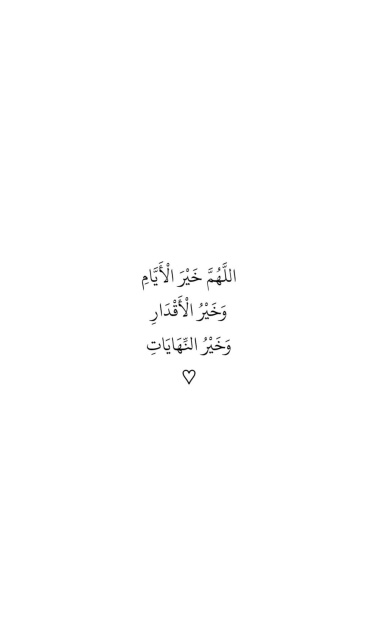 اللَّهُمَّ خَيْرَ الْأَيَّامِ
وَخَيْرُ الْأَقْدَارِ
وَخَيْرُ النِّهَايَاتِ
♡